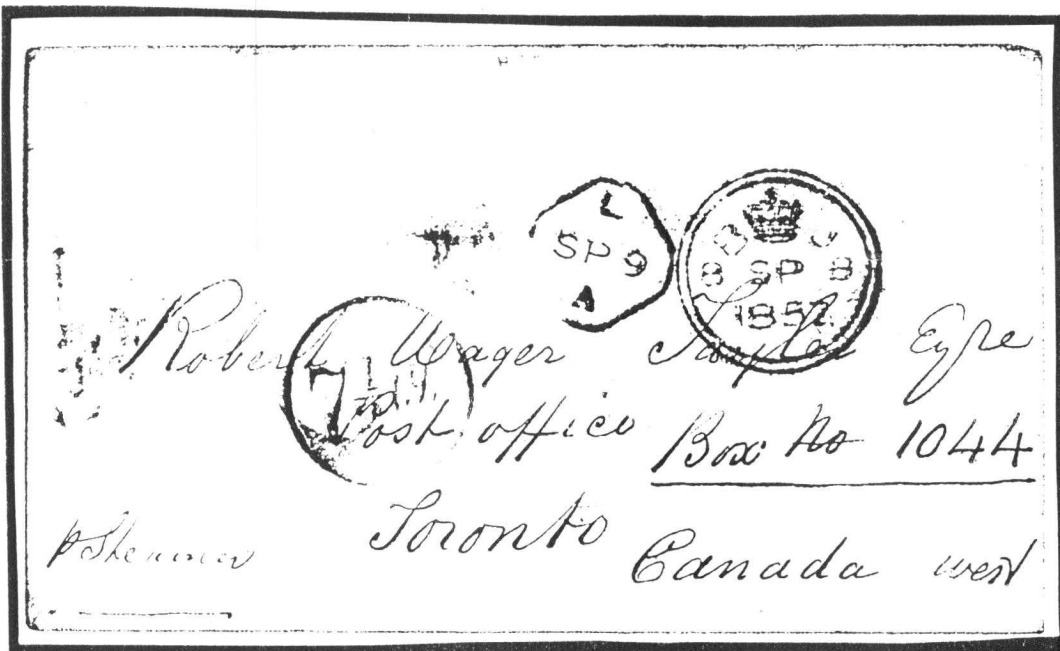 L
SP 9
A
B J
8 SP 8
1857
Robert Wager Taylor Eyre
7 1/2 D.
Post office Box No 1044
Toronto
Canada west
p Steamer